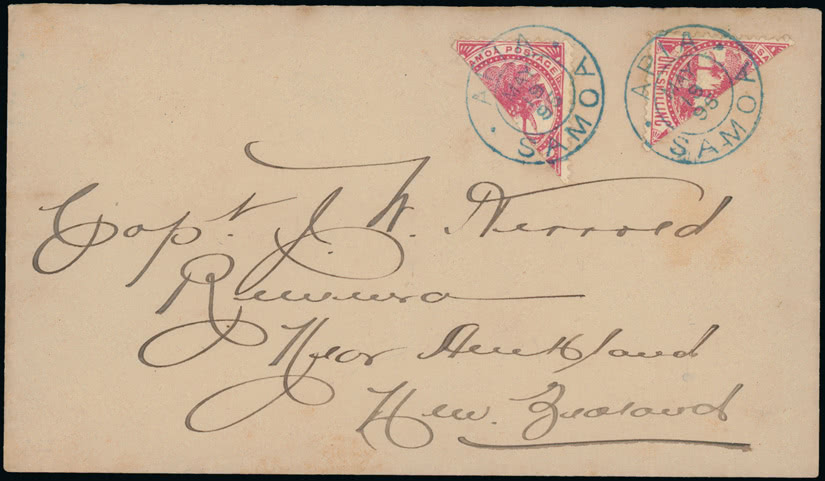 SAMOA POSTAGE
APIA
SAMOA
ONE SHILLING
SA
APIA
MAY
18
95
SAMOA
Capt. J. W.
Remuera
Near Auckland
New Zealand